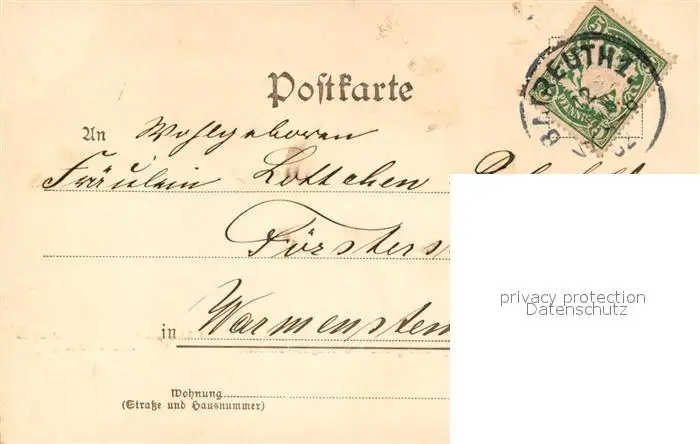 Postkarte
5
BAYREUTH 2.
PFENNIG
An Wohlgeboren
Fräulein Lottchen
Försters
in Warmenstein
Wohnung
(Straße und Hausnummer)
privacy protection
Datenschutz